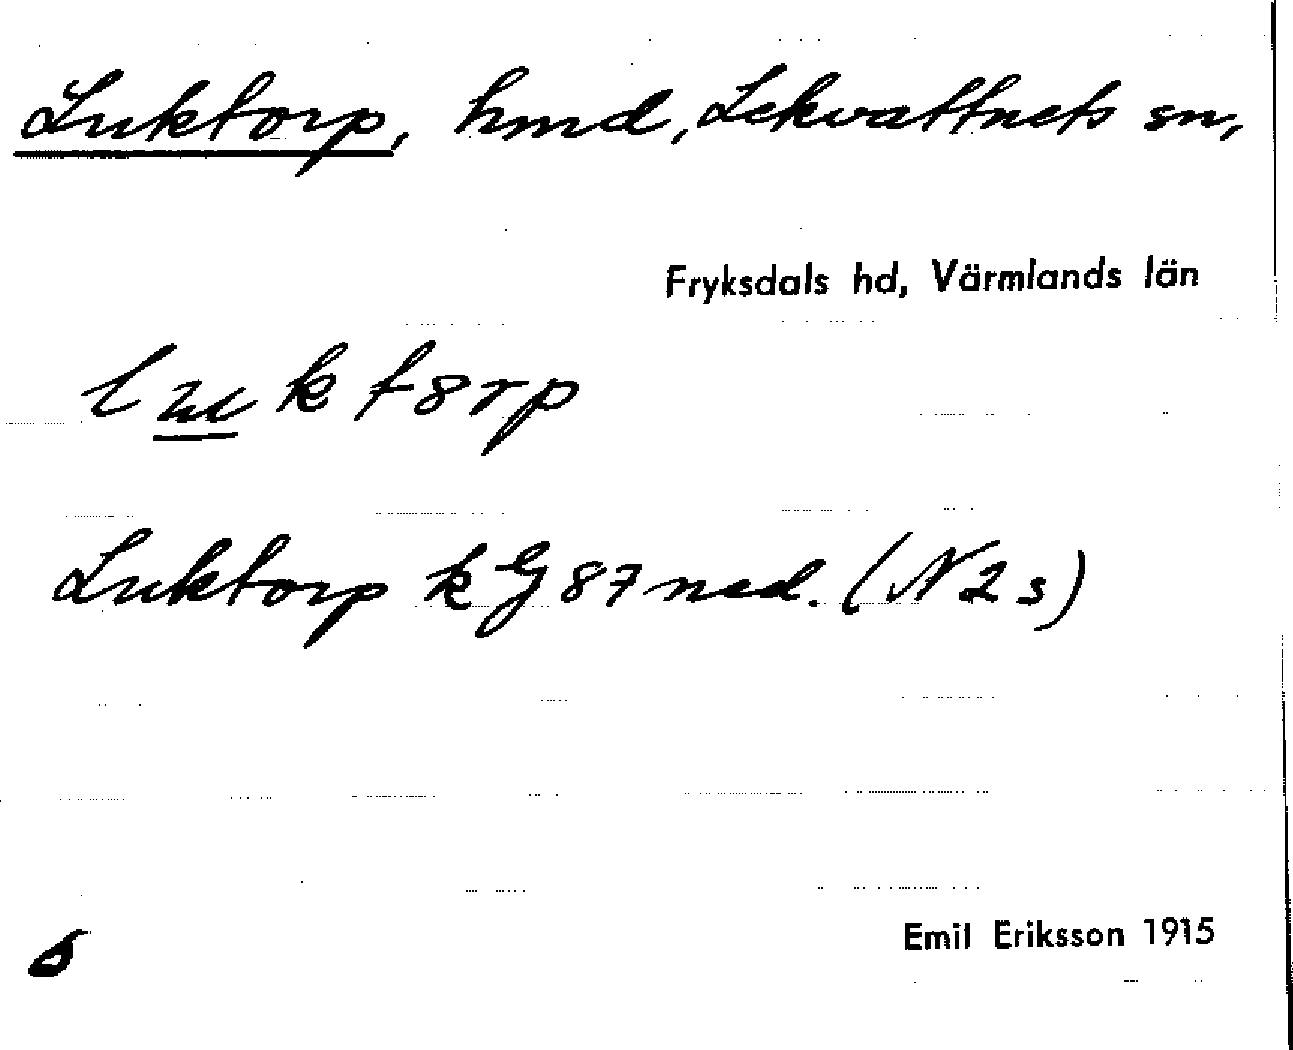 Luktorp, hmd, Lekvattnets sn,
Fryksdals hd, Värmlands län
luktȣrp
Luktorp kG87ned. (N2s)
Emil Eriksson 1915